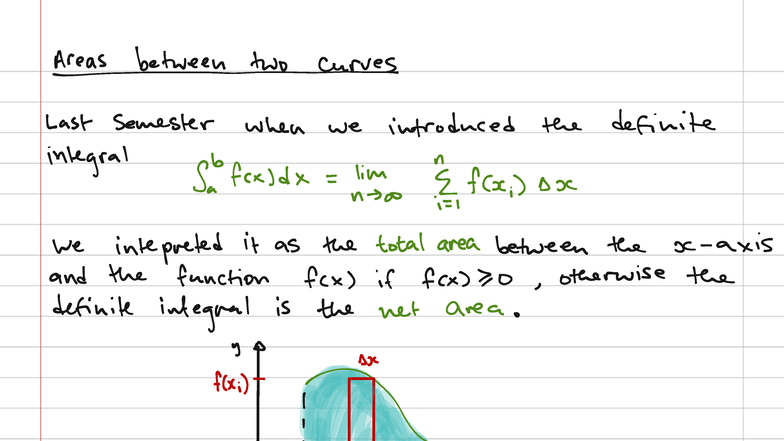 Areas between two curves
Last semester when we introduced the definite
integral
∫_a^b f(x)dx = lim_{n→∞} Σ_{i=1}^{n} f(x_i) Δx
we intepreted it as the total area between the x-axis
and the function f(x) if f(x)≥0, otherwise the
definite integral is the net area.
y
Δx
f(x_i)